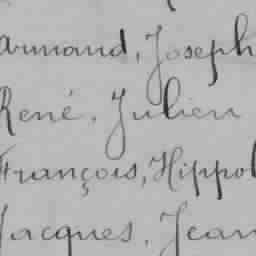 Armand, Joseph
René, Julien
François, Hippol
Jacques, Jean